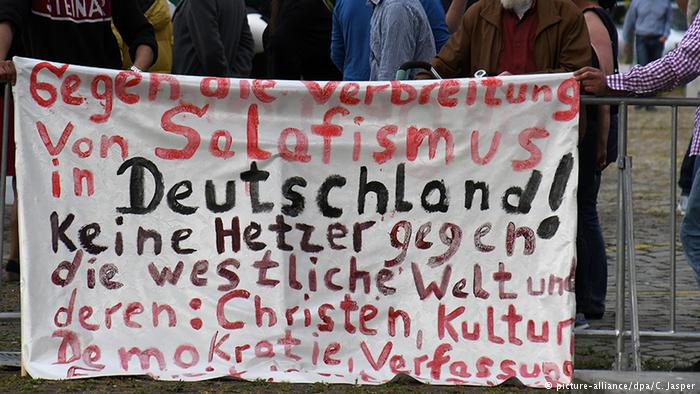 STEINA
Gegen die Verbreitung
Von Salafismus
in Deutschland!
Keine Hetzer gegen
die westliche Welt und
deren: Christen, Kultur
Demokratie, Verfassung
picture-alliance/dpa/C. Jasper